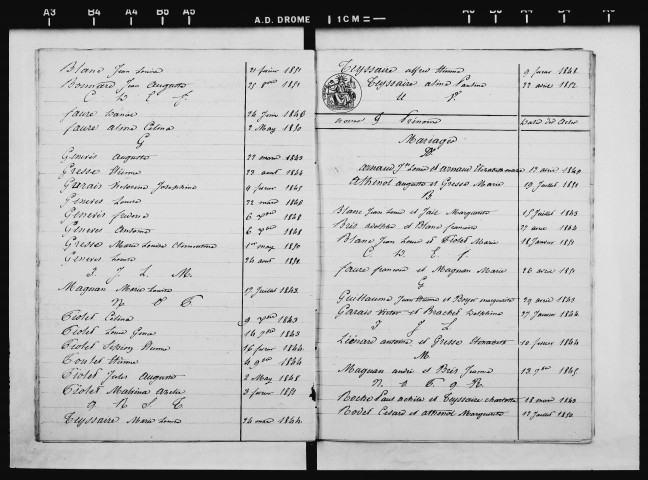 A3 B4 A4 B5 A5 A.D. DROME 1 CM =
Blanc Jean Louis 21 février 1851
Bonniard Jean Auguste 25 8bre 1851
C D E F
faure Xavier 24 Juin 1846
faure alma Célina 2 May 1850
G
Geneves Auguste 22 mars 1843
Gresse Etienne 23 aout 1844
Garais Victorine Joséphine 9 fevrier 1845
Geneves Louise 22 mars 1848
Geneves 6 xbre 1848
Geneves Antoine 6 xbre 1848
Gresse Marie Louise Clementine 1er may 1850
Geneves Louis 24 aout 1850
I J L M
Magnan Marie Louise 17 Juillet 1843
N O P
Piolet Célina 9 1843
Piolet Louis 14 1843
Piolet Etienne 16 fevrier 1844
Poulet Etienne 4 9bre 1844
Piolet Jules Auguste 2 May 1848
Piolet 3 fevrier 1851
Q R S T
Teyssaire Marie Louise 24 mai 1844
Teyssaire alfred Etienne 9 fevrier 1848
Teyssaire alma Pauline 22 avril 1852
U V
Noms & Prénoms Date des Actes
Mariages
A
arnaud Jn Louis et arnaud Elisabeth marie 12 avril 1849
Athenol auguste et Gresse Marie 19 Juillet 1851
B
Blanc Jean Louis et Marguerite 15 Juillet 1843
Bris et Blanc francoise 27 avril 1844
Blanc Jean Louis et Piolet Marie 18 Janvier 1851
C D E F
faure francois et Magnan Marie 26 avril 1851
G
Guillaume Jean Etienne et Boyer marguerite 29 avril 1843
Garais Victor et Brachet Delphine 27 Janvier 1844
I J L
Liénard antoine et Gresse Elisabeth 10 fevrier 1844
M
Magnan andré et Bris Jeanne 13 1845
N O P Q R
Roche Paul achile et Teyssaire charlotte 18 mars 1843
Rodet Cesard et athenol Marguerite 13 Juillet 1850